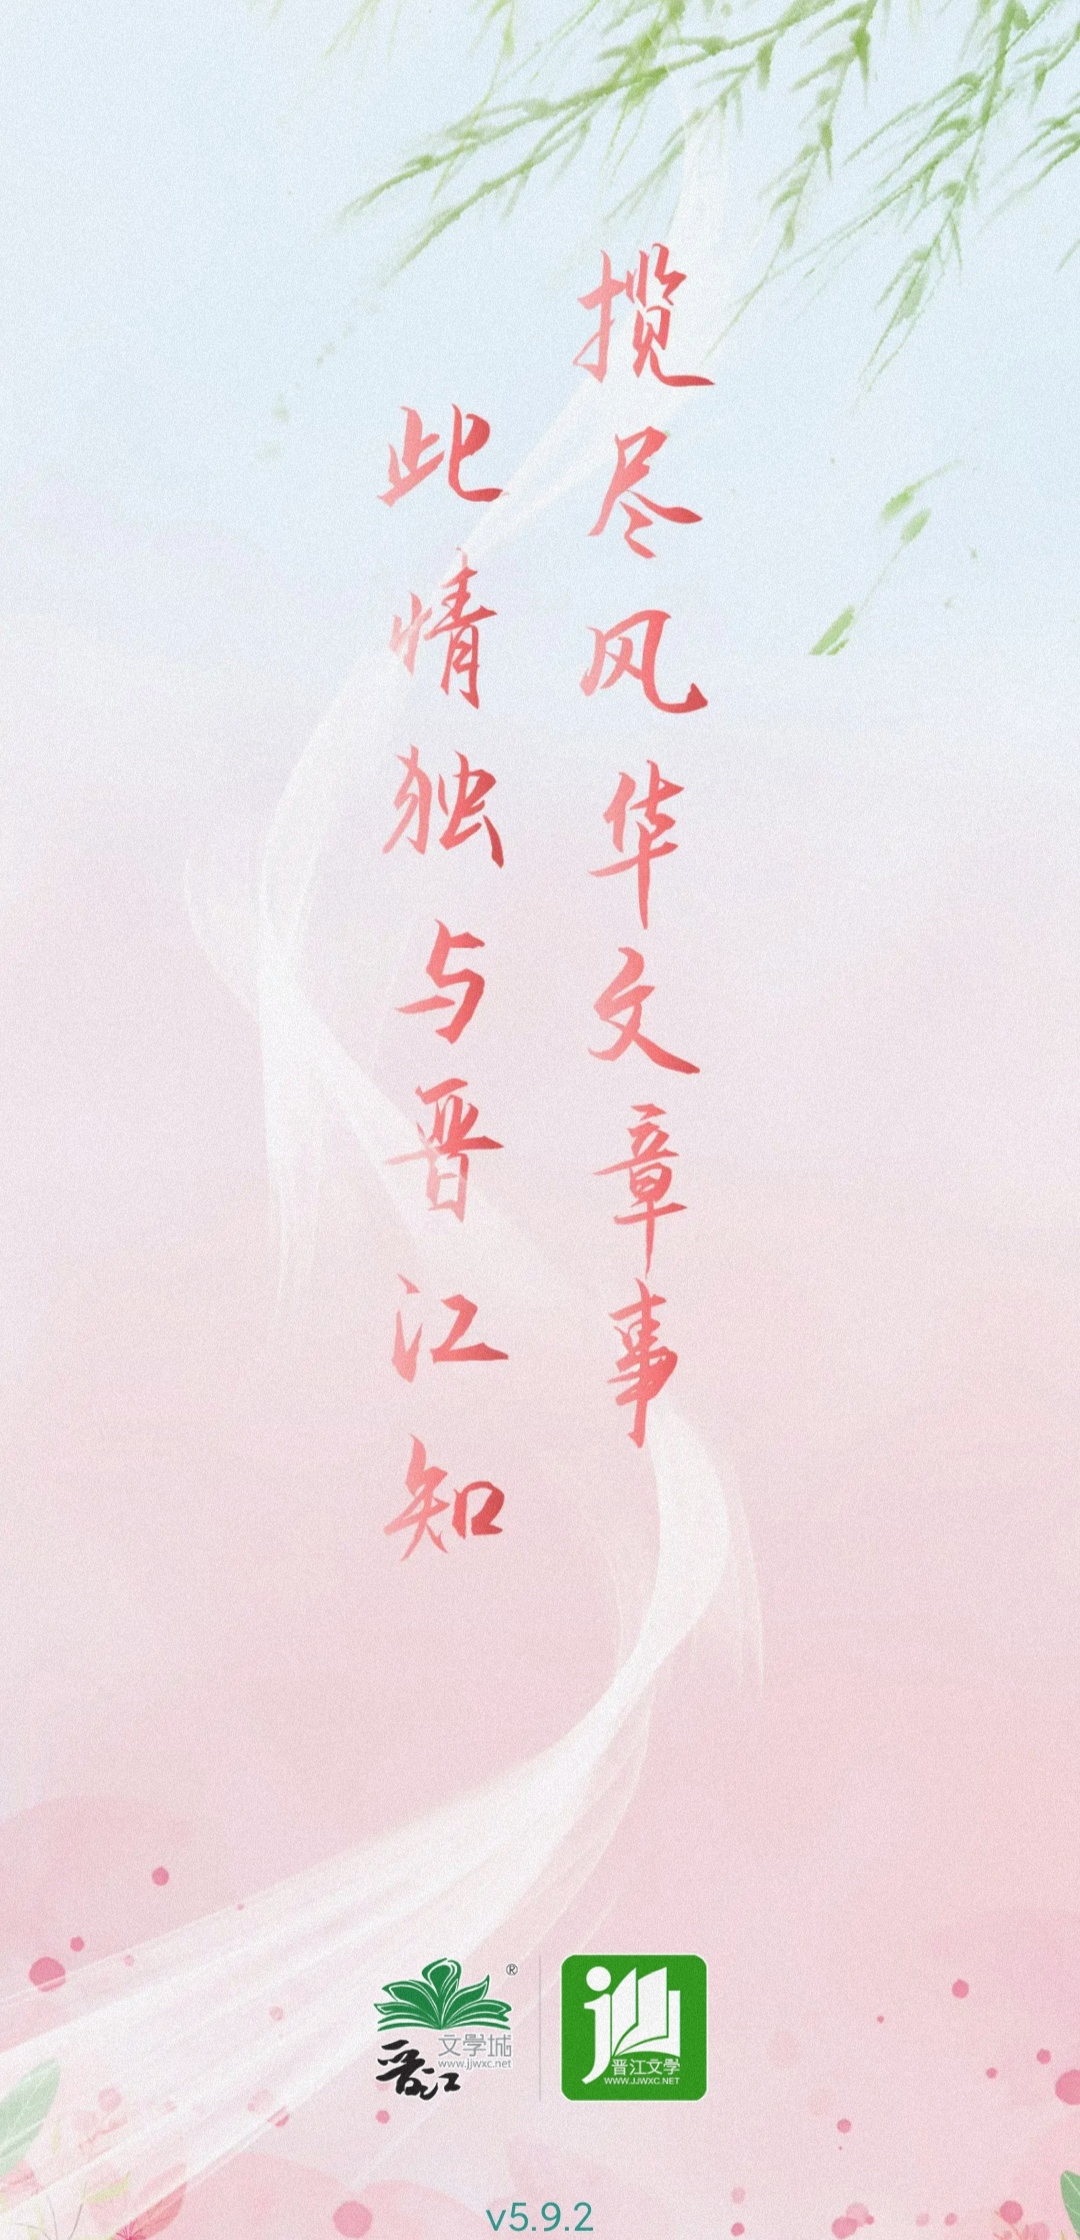 揽尽风华文章事
此情独与晋江知
®
文學城
www.jjwxc.net
晋江
晋江文学
WWW.JJWXC.NET
v5.9.2